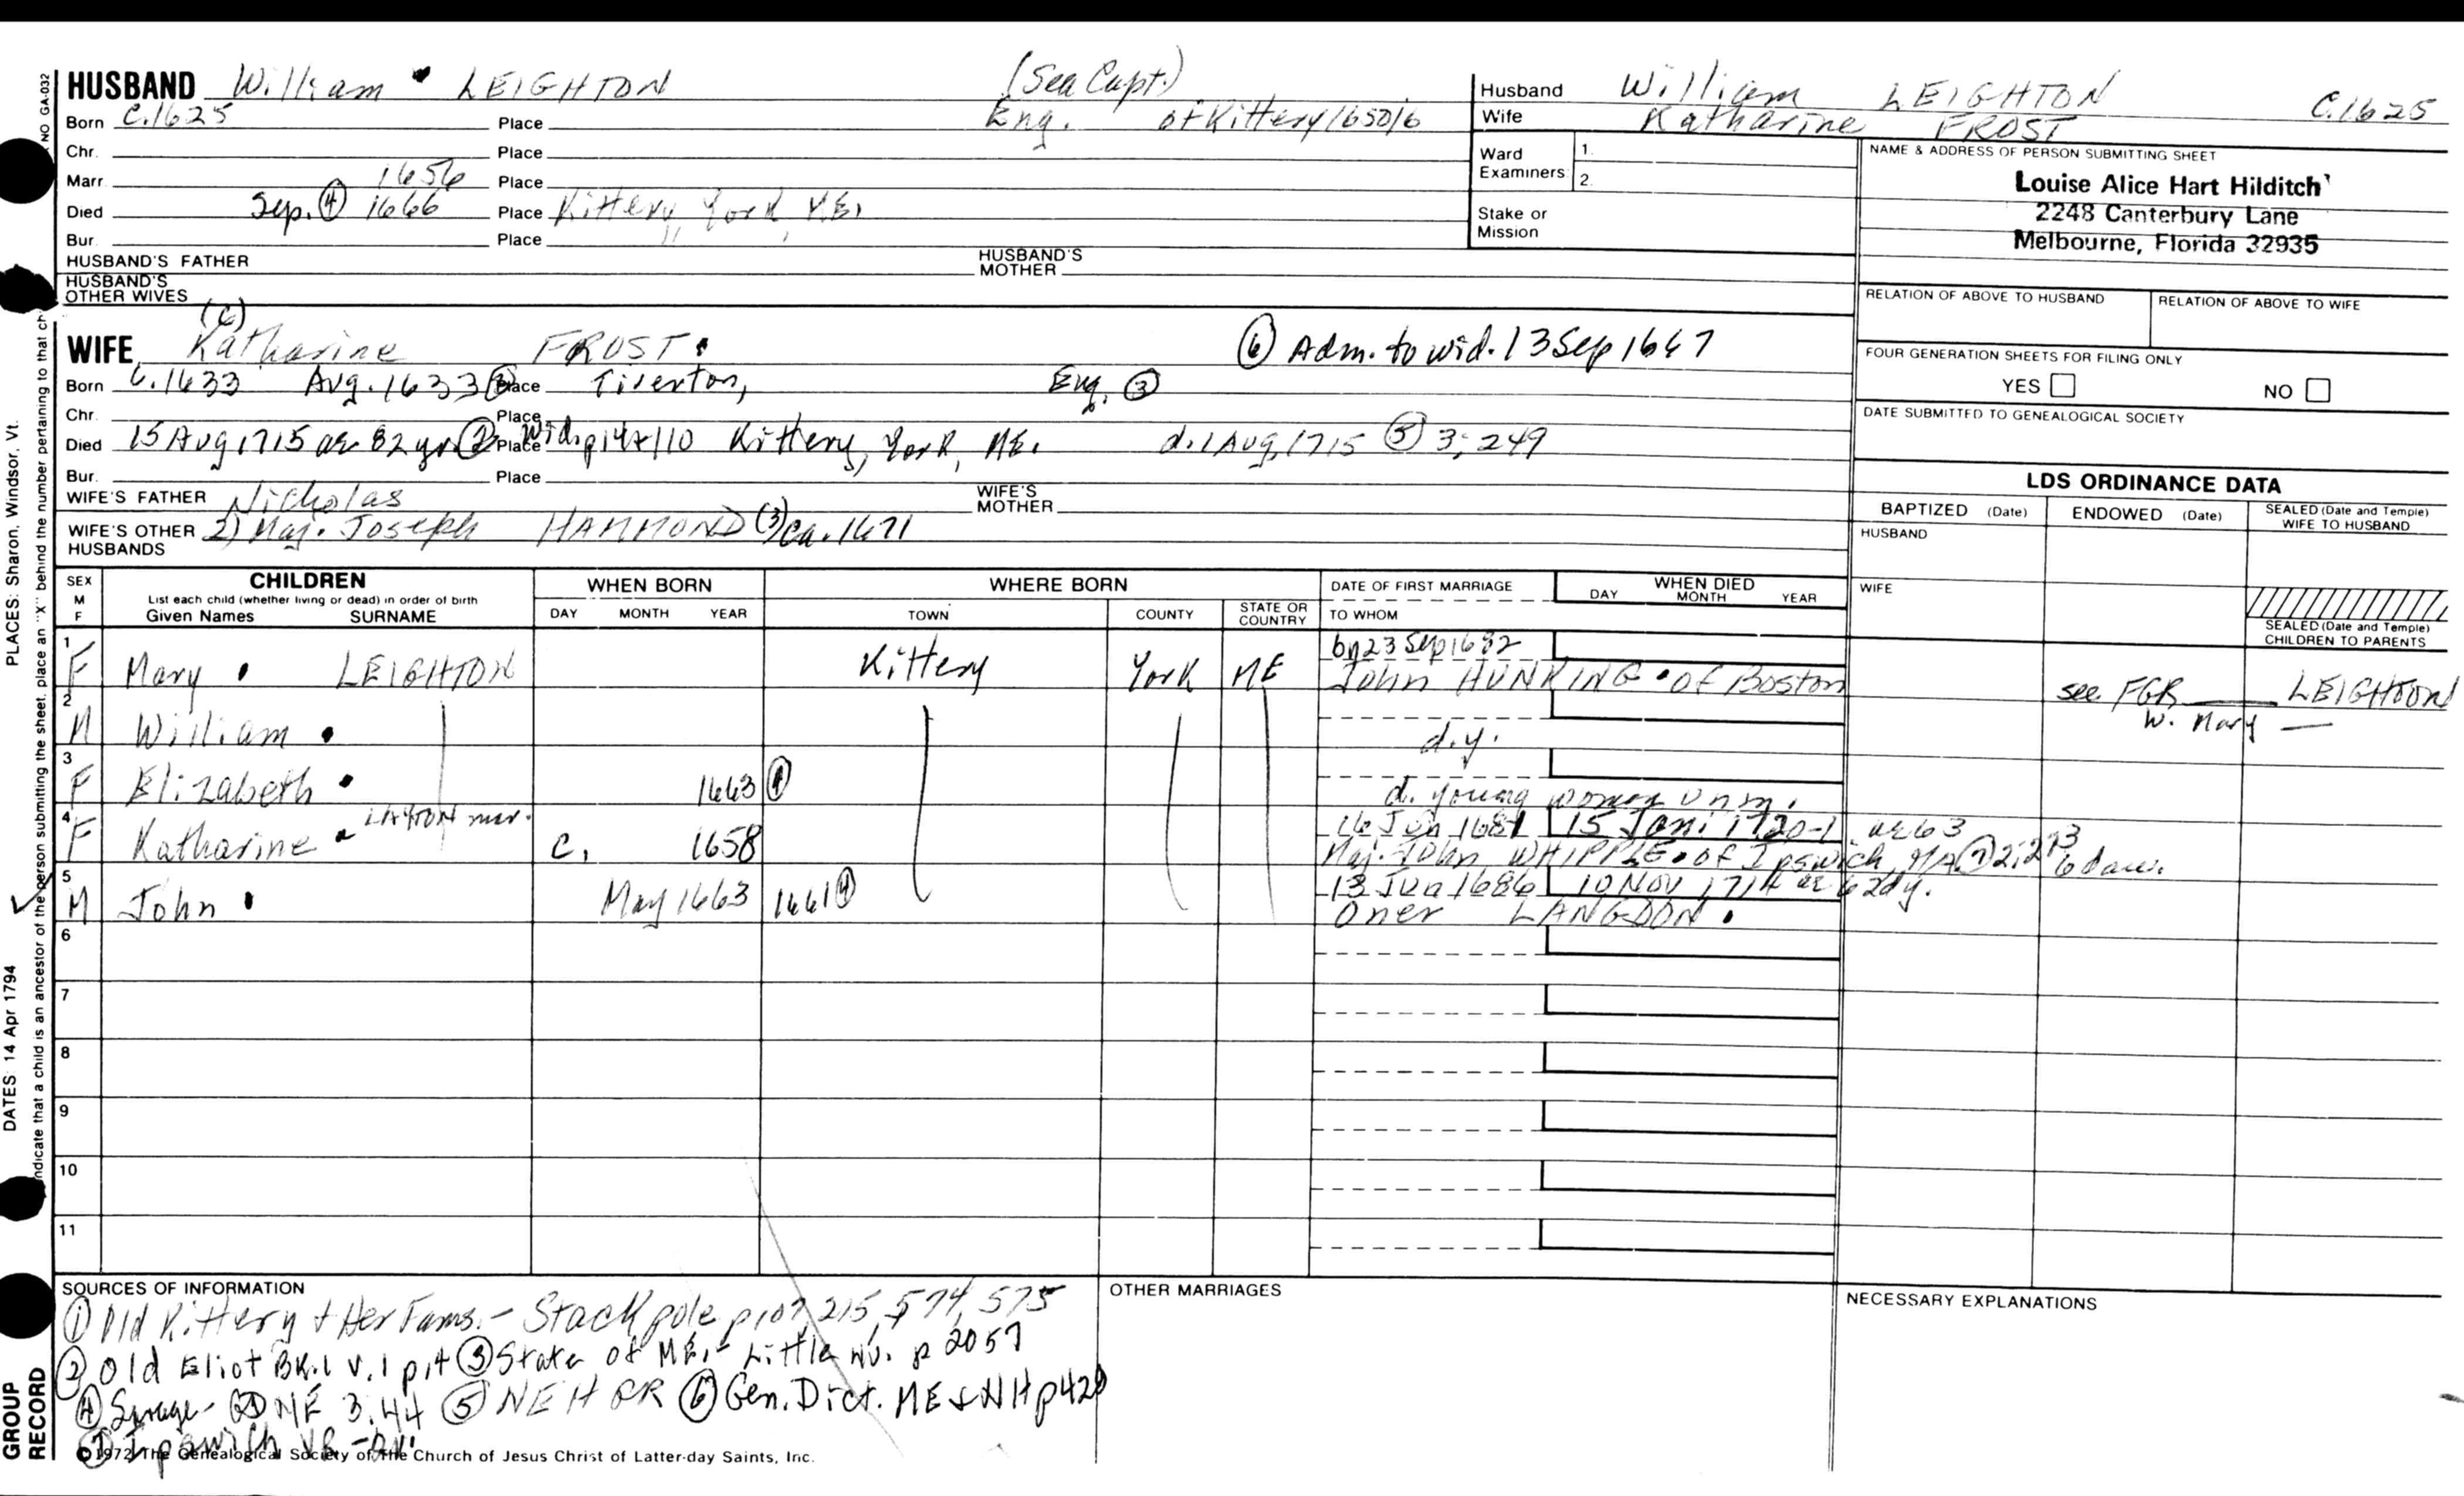 HUSBAND William LEIGHTON (Sea Capt.)
Born C.1625 Place Eng. of Kittery 1650/6
Chr. Place
Marr. 1656 Place
Died Sep. ④ 1666 Place Kittery, York, ME.
Bur. Place " ,
HUSBAND'S FATHER HUSBAND'S MOTHER
HUSBAND'S OTHER WIVES
Husband William LEIGHTON C.1625
Wife Katharine FROST
Ward Examiners 1. 2.
Stake or Mission
NAME & ADDRESS OF PERSON SUBMITTING SHEET
Louise Alice Hart Hilditch
2248 Canterbury Lane
Melbourne, Florida 32935
RELATION OF ABOVE TO HUSBAND RELATION OF ABOVE TO WIFE
FOUR GENERATION SHEETS FOR FILING ONLY
YES NO
DATE SUBMITTED TO GENEALOGICAL SOCIETY
(C)
WIFE Katharine FROST. ⑥ Adm. to wid. 13 Sep 1667
Born C.1633 Aug. 1633 Place Tiverton, Eng. ③
Chr. Place
Died 15 Aug 1715 ae 82 yr ② Place Wid. p14+110 Kittery, York, ME. d. 1 Aug 1715 ⑤ 3:249
Bur. Place
WIFE'S FATHER Nicholas WIFE'S MOTHER
WIFE'S OTHER HUSBANDS 2) Maj. Joseph HAMMOND (3) ca. 1671
LDS ORDINANCE DATA
BAPTIZED (Date) ENDOWED (Date) SEALED (Date and Temple) WIFE TO HUSBAND
HUSBAND
WIFE
SEALED (Date and Temple) CHILDREN TO PARENTS
SEX M F CHILDREN List each child (whether living or dead) in order of birth Given Names SURNAME
WHEN BORN DAY MONTH YEAR
WHERE BORN TOWN COUNTY STATE OR COUNTRY
DATE OF FIRST MARRIAGE TO WHOM
WHEN DIED DAY MONTH YEAR
1 F Mary LEIGHTON Kittery York ME by 23 Sep 1682
John HUNKING of Boston see FGR LEIGHTON
W. Mary —
2 M William d.y.
3 F Elizabeth 1663 ④ d. young woman unm.
4 F Katharine LAYTON mar. c. 1658 16 Jun 1681 15 Jan. 1720-1 ae 63
Maj. John WHIPPLE of Ipswich, MA ⑦ 2:273 6 dau.
5 M John May 1663 1661 ④ 13 Jun 1686 10 Nov 1714 ae 62dy.
Oner LANGDON.
6
7
8
9
10
11
SOURCES OF INFORMATION
① Old Kittery & Her Fams. - Stackpole p107, 215, 574, 575
② Old Eliot Bk.1 V.1 p14 ③ State of ME. - Little NV. p 2057
④ Savage - GDNE 3:44 ⑤ NEHGR ⑥ Gen. Dict. ME & NH p420
⑦ Ipswich VR
©1972 The Genealogical Society of The Church of Jesus Christ of Latter-day Saints, Inc.
OTHER MARRIAGES
NECESSARY EXPLANATIONS
NO GA-032
PLACES: Sharon, Windsor, Vt.
DATES: 14 Apr 1794
indicate that a child is an ancestor of the person submitting the sheet, place an "X" behind the number pertaining to that ch
GROUP RECORD